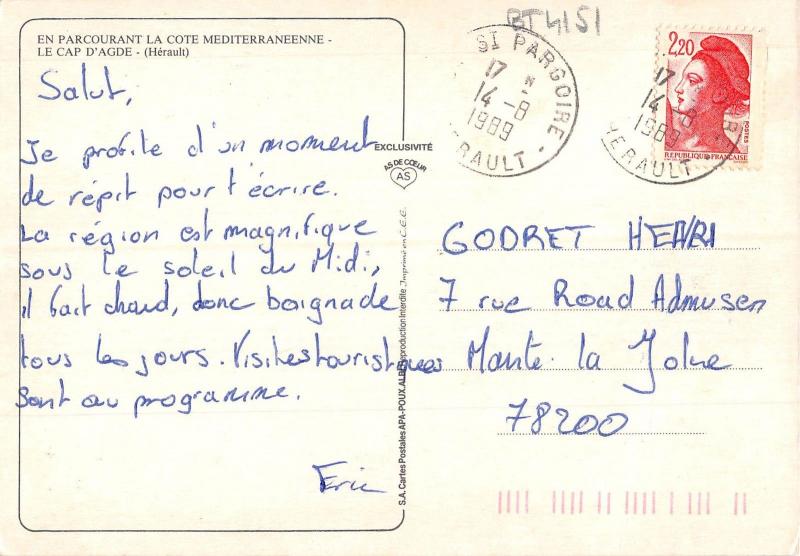 EN PARCOURANT LA COTE MEDITERRANEENNE -
LE CAP D'AGDE - (Hérault)
Salut,
Je profite d'un moment
de répit pour t'écrire.
La région est magnifique
sous le soleil du Midi,
il fait chaud, donc baignade
tous les jours. Visites touristiques
sont au programme.
Eric
EXCLUSIVITÉ
AS DE CŒUR
AS
S.A. Cartes Postales APA-POUX, ALBI Reproduction Interdite Imprimé en C.E.E.
BT4151
ST PARGOIRE
17 H
14-8
1989
HERAULT
2,20
POSTES
REPUBLIQUE FRANÇAISE
17
14-8
1989
HERAULT
GODRET HENRI
7 rue Road Admusen
Mante la Jolie
78200